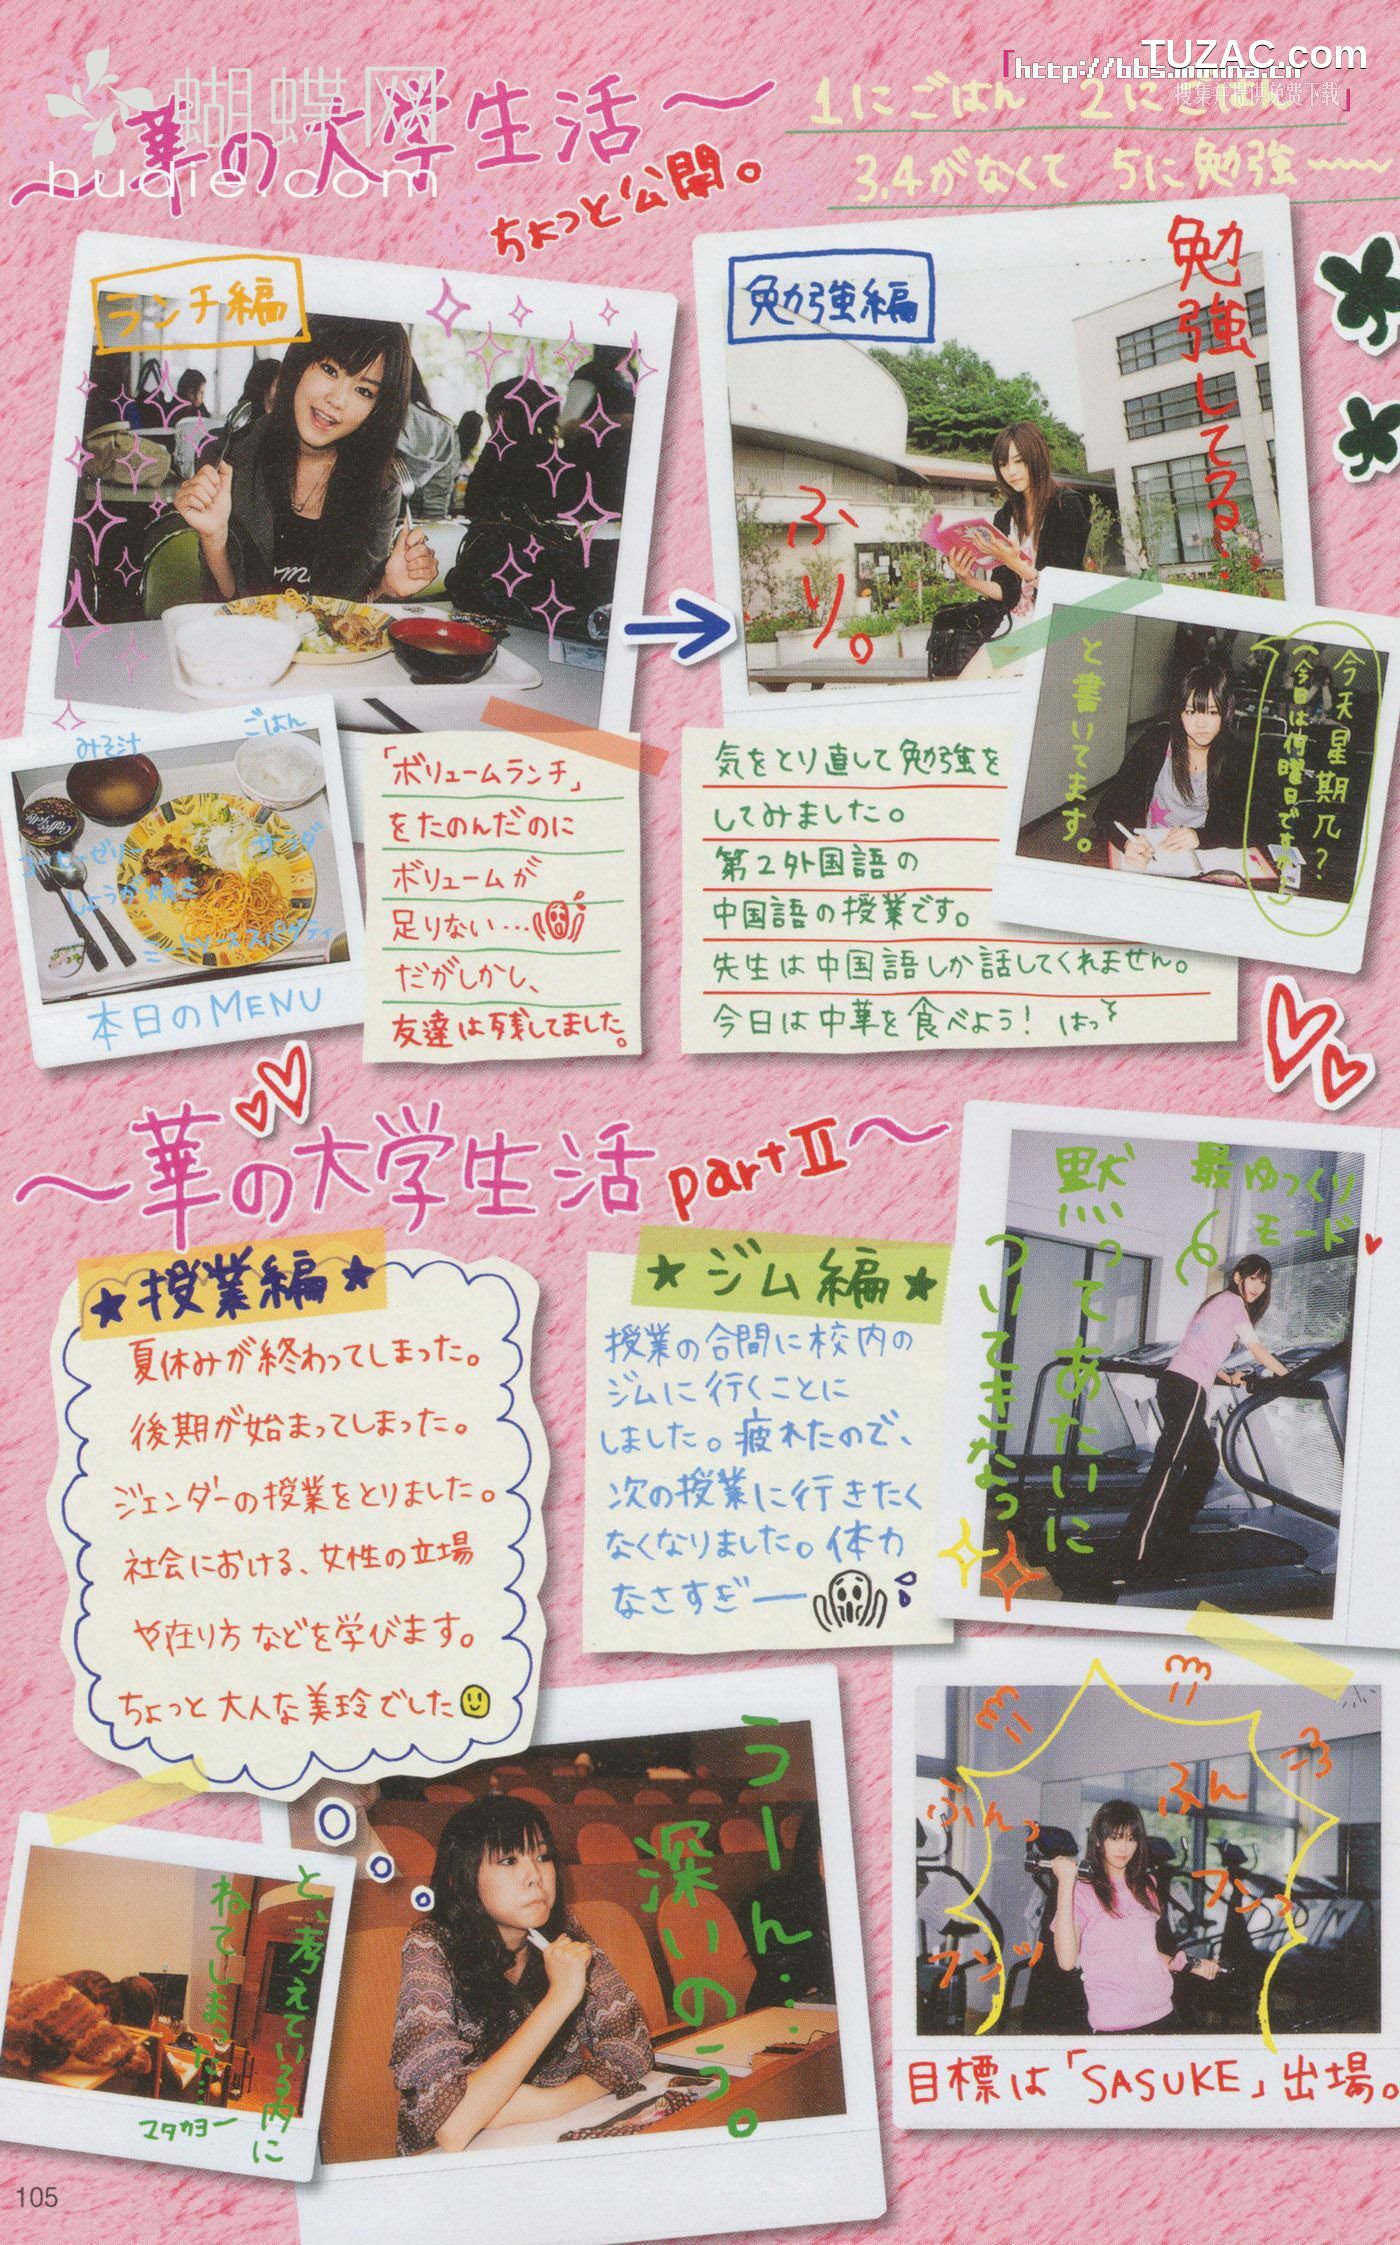 TUZAC.com
「http://bbs.mnina.cn
搜集并提供免费下载」
蝴蝶网
hudie.com
～華の大学生活～
ちょっと公開。
1にごはん 2にごはん
3,4がなくて 5に勉強～
ランチ編
勉強編
勉強してる…
ふり。
みそ汁
ごはん
コーヒーゼリー
サラダ
しょうが焼き
ミートソーススパゲティ
本日のMENU
「ボリュームランチ」
をたのんだのに
ボリュームが
足りない…
だがしかし、
友達は残してました。
今天星期几？
(今日は何曜日ですか)
と書いてます。
気をとり直して勉強を
してみました。
第2外国語の
中国語の授業です。
先生は中国語しか話してくれません。
今日は中華を食べよう! はっ
～華の大学生活 partⅡ～
★授業編★
夏休みが終わってしまった。
後期が始まってしまった。
ジェンダーの授業をとりました。
社会における、女性の立場
や在り方などを学びます。
ちょっと大人な美玲でした
★ジム編★
授業の合間に校内の
ジムに行くことに
しました。疲れたので、
次の授業に行きたく
なくなりました。体力
なさすぎー
最ゆっくり
モード
黙ってあたいに
ついてきなっ
うーん…
深いのう。
と、考えている内に
ねてしまった…
マタカヨー
ふんっ
ふん
フンっ
フンッ
目標は「SASUKE」出場。
105